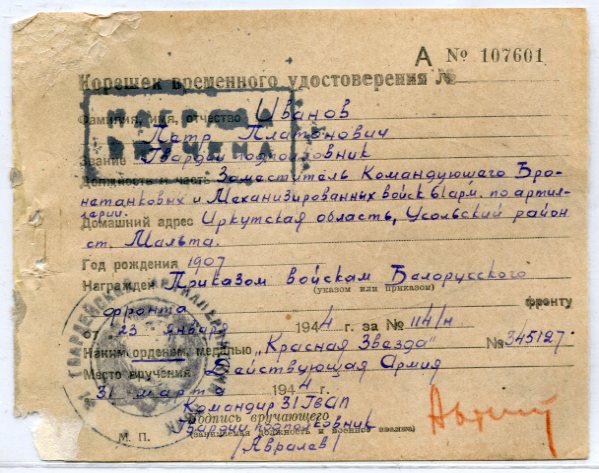 А № 107601
Корешек временного удостоверения №
НАГРАДА
ВРУЧЕНА
Фамилия, имя, отчество Иванов
Петр Платонович
Звание Гвардии подполковник
Должность и часть Заместитель Командующего Бро-
нетанковых и Механизированных войск 61 арм. по артил-
лерии.
Домашний адрес Иркутская область, Усольский район
ст. Мальта.
Год рождения 1907
Награжден Приказом войскам Белорусского
(указом или приказом)
фронта фронту
от 23 января 1944 г. за № 114/н
Каким орденом, медалью „Красная Звезда" № 345127.
Место вручения Действующая Армия
31 марта 1944 г.
Командир 31 ГвАП
Подпись вручающего
Гвардии подполковник
(занимаемая должность и военное звание)
М. П. /Авралев/